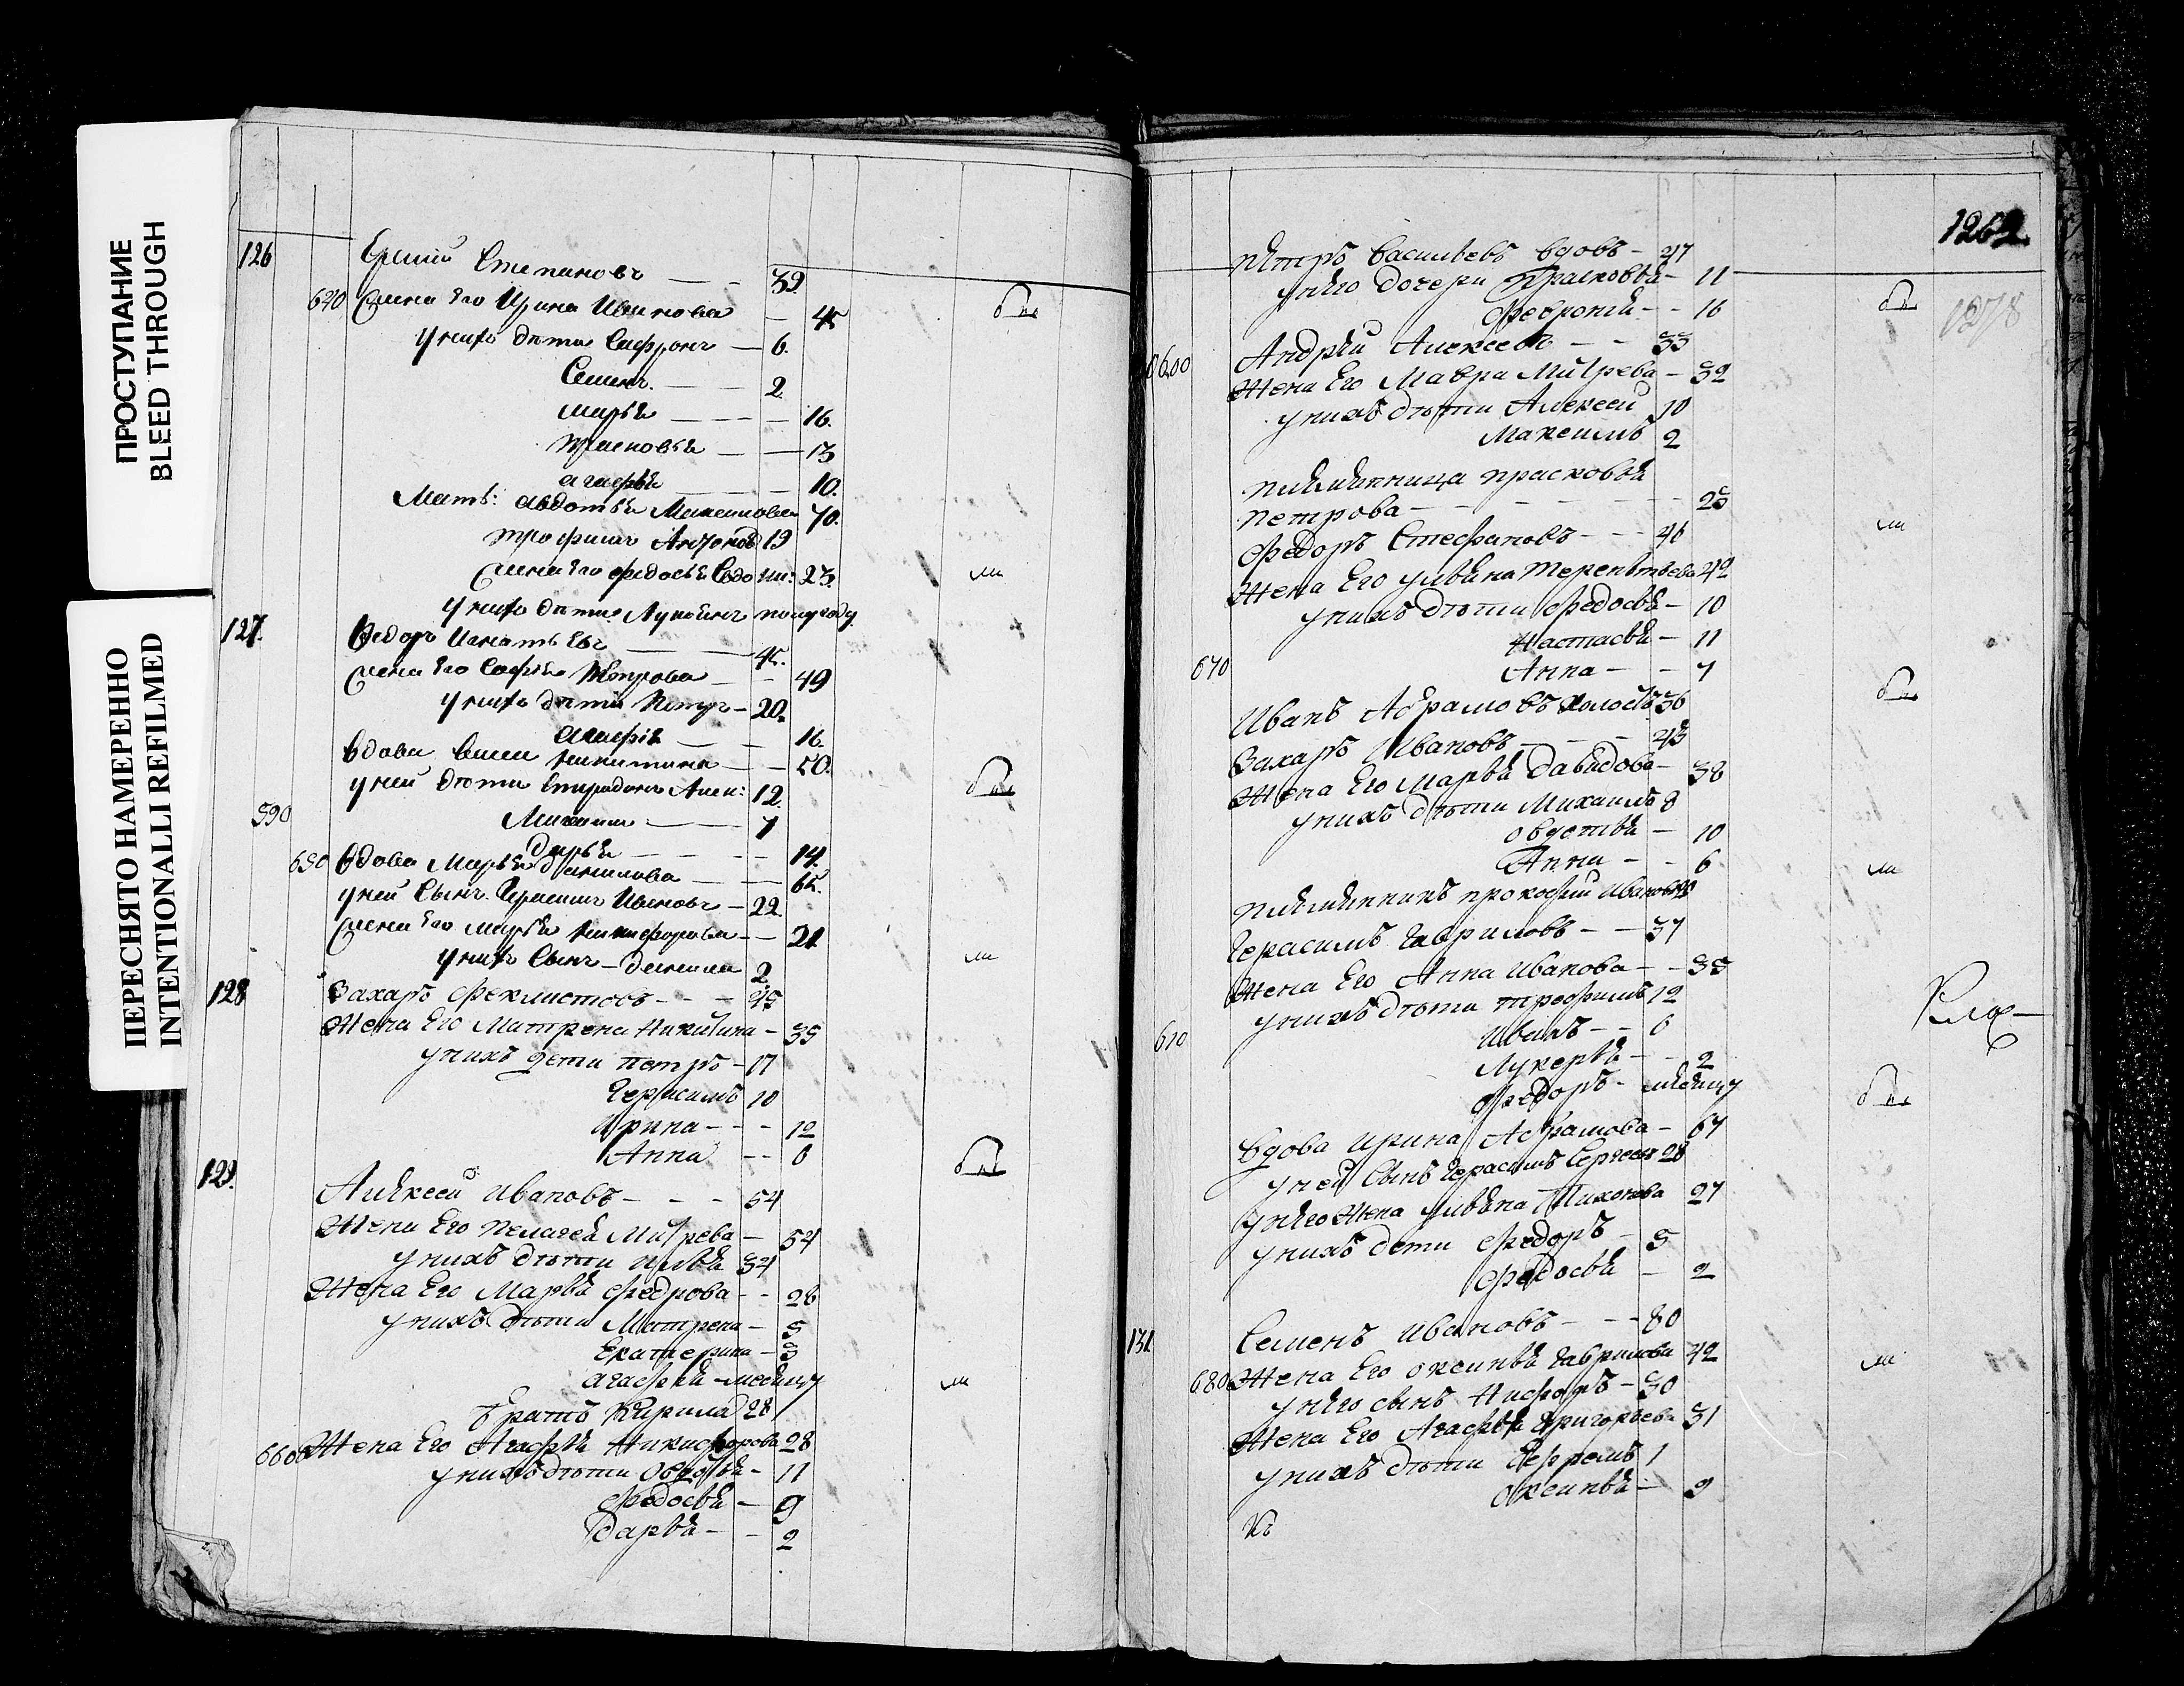 ПРОСТУПАНИЕ
BLEED THROUGH
ПЕРЕСНЯТО НАМЕРЕННО
INTENTIONALLI REFILMED
126 Степановъ — 39.
640 Жена Его Ирина Иванова — 45
у нихъ дѣти Сафронъ — 6.
Семенъ — 2
Марья — 16.
Прасковья — 13
Агафья — 10.
Мать: Авдотья Максимова 70.
Трофимъ 19
Жена Его Федосья 23.
у нихъ дѣти Лукьянъ полугоду
127. Федоръ Игнатьевъ — 45.
Жена Его Софья Петрова — 49
у нихъ дѣти Петръ — 20.
Агафья — 16.
Вдова Никитина — 50.
у ней дѣти Спиридонъ Алек: 12
590 7
Дарья — 14.
650 Вдова Марья Данилова — 65.
у ней Сынъ Герасимъ Ивановъ — 22.
Жена Его Марья Никифорова — 21
у нихъ Сынъ — Данила 2
128 Захаръ Феклистовъ — 45
Жена Его Матрена Никитина — 35
у нихъ дети Петръ — 17
Герасимъ 10
Ирина — 12
Анна — 6
129. Алексей Ивановъ — 54
Жена Его Пелагея Митрева — 54
у нихъ дѣти Илья 34
Жена Его Марья Федрова — 26
у нихъ дѣти Матрена — 5
Екатерина — 3
Агафья — месяцу
братъ Кирила 28
660 Жена Его Агафья Никифорова 28
у нихъ дѣти Овдотья — 11
Федосья — 9
Дарья — 2
1262
1278
Петръ Васильевъ вдовъ — 47
у него дочери Прасковья — 11
Февронья — 16
Андрей Алексеевъ — 33
Жена Его Мавра Митрева — 32
у нихъ дѣти Алексей 10
Максимъ 2
племянница Прасковья
Петрова — 25
Федоръ Стефановъ — 46
Жена Его Ульяна Терентьева 42
у нихъ дѣти Федосья — 10
Настасья — 11
670 Анна — 7
Иванъ Абрамовъ холостъ 36
Захаръ Ивановъ — 43
Жена Его Марья Давидова — 38
у нихъ дѣти Михаилъ 8
Овдотья — 10
Анна — 6
племянникъ Прокофий Ивановъ
Герасимъ Гавриловъ — 37
Жена Его Анна Иванова — 35
у нихъ дѣти Трефимъ 12
610 Иванъ — 6
Лукерья — 2
Федоръ — месяцу
Вдова Ирина Абрамова — 67
у ней Сынъ Герасимъ Сергеевъ 28
у него Жена Ульяна Тихонова 27
у нихъ дети Федоръ — 5
Федосья — 2
131 Семенъ Ивановъ — 80
680 Жена Его Оксинья Гаврилова 42
у него сынъ Нифоръ — 30
Жена Его Агафья Григорьева 31
у нихъ дѣти Ефремъ 1
Оксинья — 9
Къ